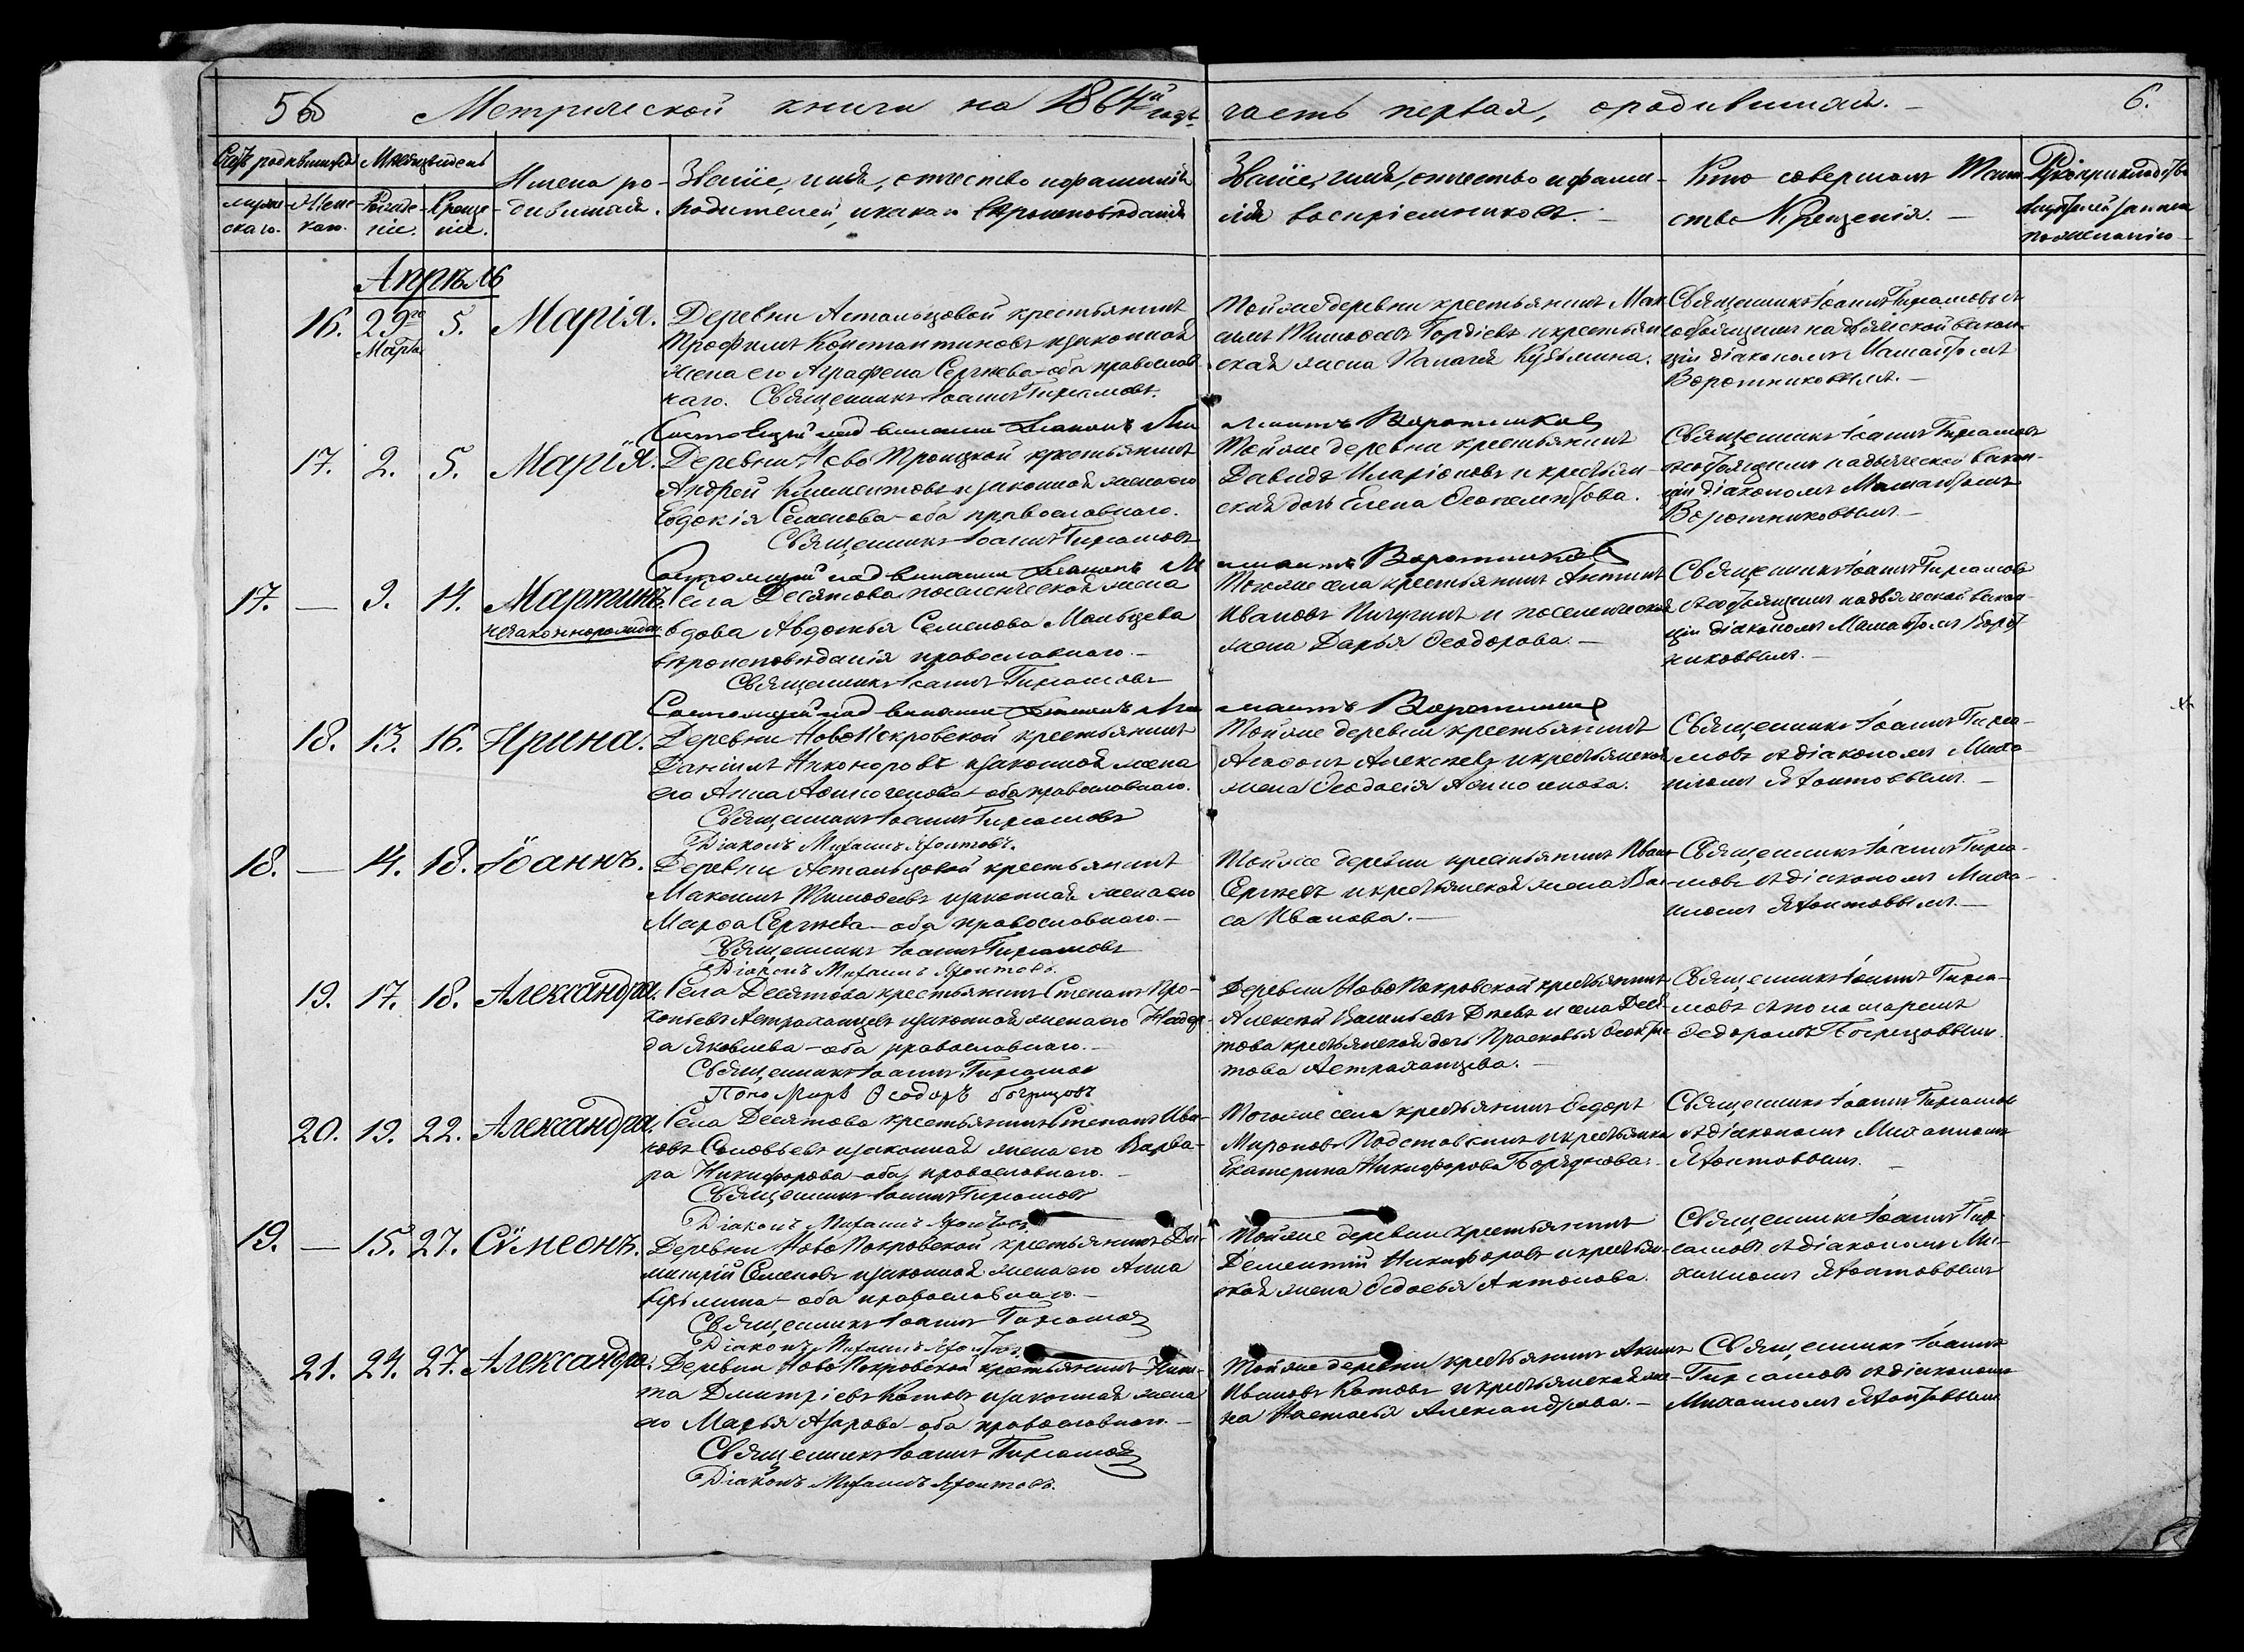 Метрической книги на 1864й годъ
часть первая, о родившихся.
6.
Счетъ родившихся
Мѣсяцъ и день
Имена ро-
дившихся.
Званіе, имя, отчество и фамилія
родителей, и какого вѣроисповѣданія
Званіе, имя, отчество и фами-
лія воспріемниковъ.
Кто совершалъ Таин-
ство Крещенія.
Мужескаго.
Женскаго.
Рожденіе.
Крещеніе.
Апрѣль
16.
29го
Марта
5.
Марія.
Деревни Астальцовой крестьянинъ
Трофимъ Константиновъ и законная
жена его Аграфена Сергѣева оба православ-
наго. Священникъ Іоаннъ Гирсамовъ.
Состоящій над вакансіи Діаконъ Ма
Тойже деревни крестьянинъ Мак-
симъ Тимофеевъ Гордіевъ и крестьян-
ская жена Палагея Кузьмина.
мантъ Воротниковъ
Священникъ Іоаннъ Гирсамовъ съ
состоящимъ на дьяческой вакан-
ціи діакономъ Мамантомъ
Воротниковымъ.
17.
2.
5.
Марія.
Деревни Ново Троицкой крестьянинъ
Андрей Климентовъ и законная жена его
Евдокія Семенова оба православнаго.
Священникъ Іоаннъ Гирсамовъ
Состоящій над вакансіи Діаконъ Ма
Тойже деревни крестьянинъ
Давидъ Иларіоновъ и крестьян-
ская дочь Елена
мантъ Воротниковъ
Священникъ Іоаннъ Гирсамовъ
съ состоящимъ на дьяческой вакан-
ціи діакономъ Мамантомъ
Воротниковымъ
17.
—
9.
14.
Мартинъ.
незаконнорожден.
Села Десятова поселенческая жена
вдова Авдотья Семенова Мальцева
вѣроисповѣданія православнаго.
Священникъ Іоаннъ Гирсамовъ
Состоящій над вакансіи Діаконъ Ма
Тогоже села крестьянинъ Антипъ
Ивановъ Пичугинъ и поселенческая
жена Дарья Ѳеодорова.
мантъ Воротниковъ
Священникъ Іоаннъ Гирсамовъ
съ состоящимъ на дьяческой вакан-
ціи діакономъ Мамантомъ Ворот
никовымъ.
18.
13.
16.
Ирина.
Деревни Ново Покровской крестьянинъ
Даніилъ Никоноровъ и законная жена
его Анна Афиногенова оба православнаго.
Священникъ Іоаннъ Гирсамовъ
Діаконъ Михаилъ Яхонтовъ.
Тойже деревни крестьянинъ
Агафонъ Алексѣевъ и крестьянская
жена Ѳеодосія Афиногенова.
Священникъ Іоаннъ Гирса-
мовъ съ діакономъ Миха-
иломъ Яхонтовымъ
18.
—
14.
18.
Іоаннъ.
Деревни Астальцовой крестьянинъ
Максимъ Тимофеевъ и законная жена его
Марфа Сергѣева оба православнаго.
Священникъ Іоаннъ Гирсамовъ
Діаконъ Михаилъ Яхонтовъ.
Тойже деревни крестьянинъ Иванъ
Сергѣевъ и крестьянская жена Вас-
са Иванова.
Священникъ Іоаннъ Гирса-
мовъ съ діакономъ Миха-
иломъ Яхонтовымъ.
19.
17.
18.
Александра.
Села Десятова крестьянинъ Степанъ Про-
копьевъ Астраханцевъ и законная жена его Надеж-
да Яковлева оба православнаго.
Священникъ Іоаннъ Гирсамовъ
Пономарь Ѳеодоръ Богрецовъ
Деревни Ново Покровской крестьянинъ
Алексѣй Васильевъ и села Деся-
това крестьянская дочь Прасковья
това Астраханцева.
Священникъ Іоаннъ Гирса-
мовъ съ пономаремъ
Ѳедоромъ Богрецовымъ.
20.
19.
22.
Александра.
Села Десятова крестьянинъ Степанъ Ива-
новъ Соловьевъ и законная жена его Варва-
ра Никифорова оба православнаго.
Священникъ Іоаннъ Гирсамовъ
Діаконъ Михаилъ Яхонтовъ
Тогоже села крестьянинъ Ѳедоръ
Мироновъ и крестьянка
Екатерина Никифорова
Священникъ Іоаннъ Гирсамовъ
съ діакономъ Михаиломъ
Яхонтовымъ.
19.
—
15.
27.
Сѵмеонъ.
Деревни Ново Покровской крестьянинъ Ди-
митрій Семеновъ и законная жена его Анна
Кузьмина оба православнаго.
Священникъ Іоаннъ Гирсамовъ
Діаконъ Михаилъ Яхонтовъ
Тойже деревни крестьянинъ
Дементій Никифоровъ и крестьян-
ская жена Ѳедосья Антонова.
Священникъ Іоаннъ Гир-
самовъ съ діакономъ Ми-
хаиломъ Яхонтовымъ
21.
24.
27.
Александра.
Деревни Ново Покровской крестьянинъ Ники-
та Дмитріевъ Котовъ и законная жена
его Марья Азарова оба православнаго.
Священникъ Іоаннъ Гирсамовъ
Діаконъ Михаилъ Яхонтовъ.
Тойже деревни крестьянинъ Акимъ
Ивановъ Котовъ и крестьянская же-
на Настасья Александрова.
Священникъ Іоаннъ
Гирсамовъ съ діакономъ
Михаиломъ Яхонтовымъ